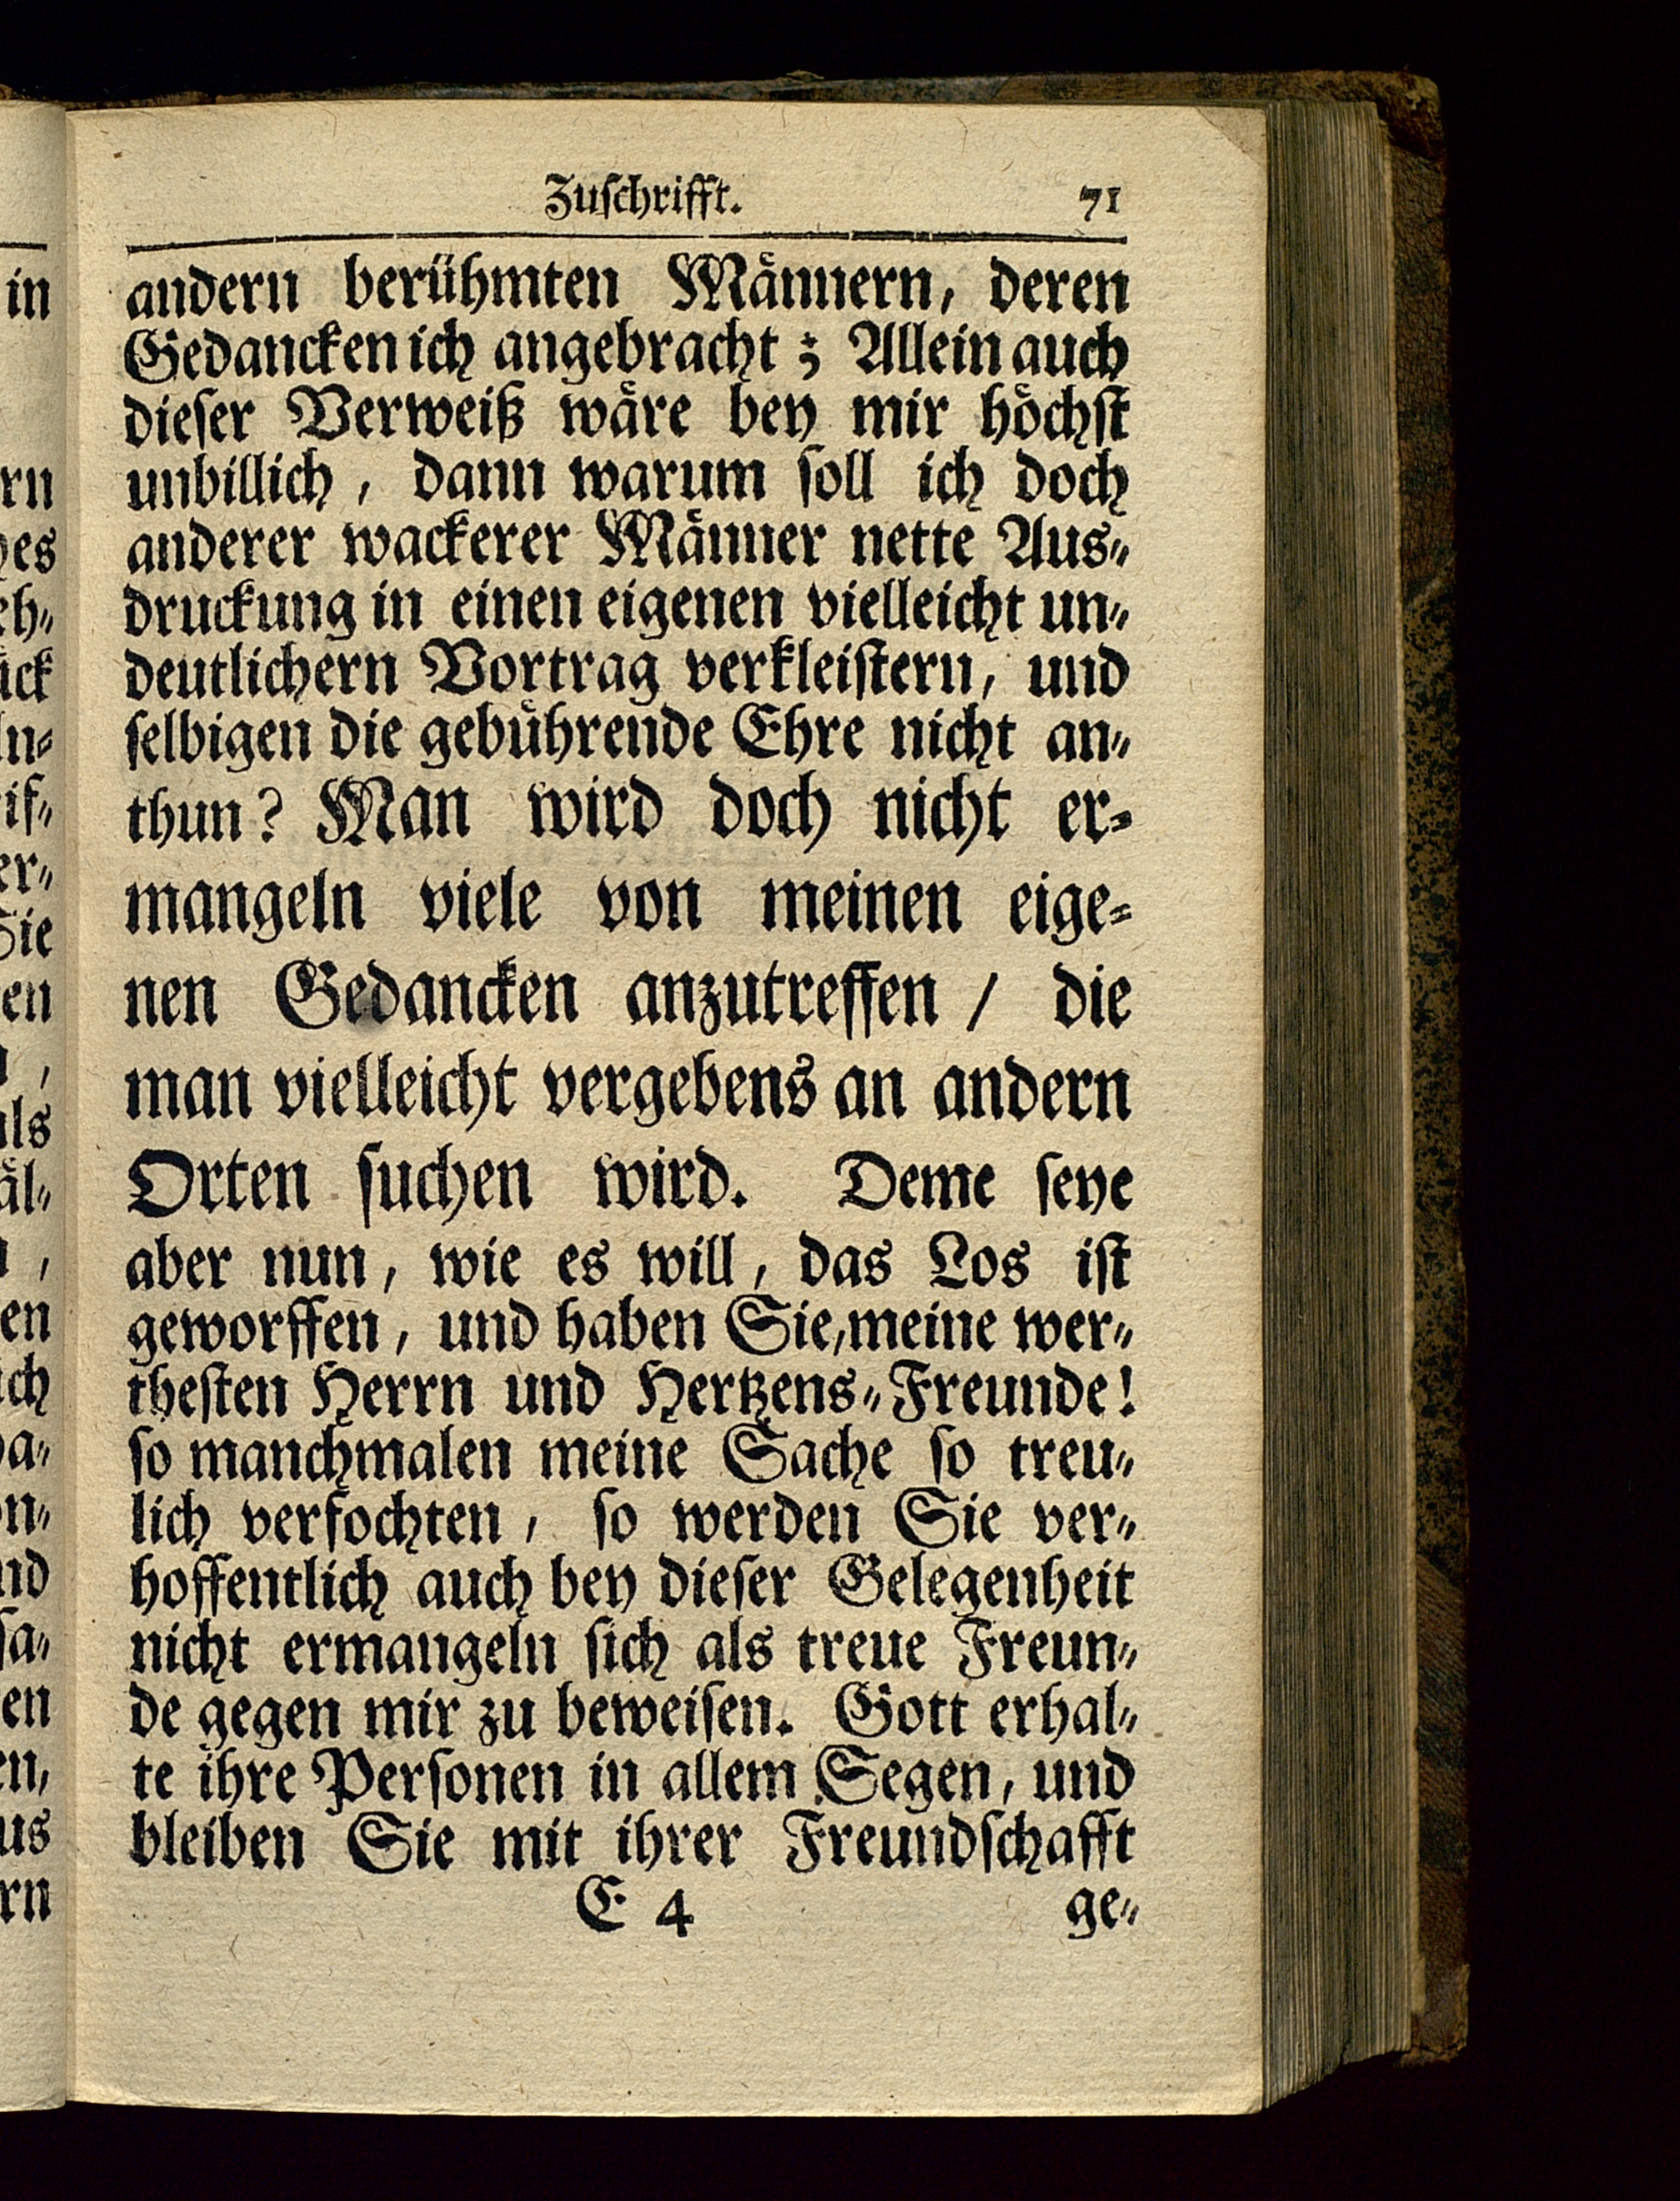 Zuschrifft. 71
andern berühmten Männern, deren
Gedancken ich angebracht; Allein auch
dieser Verweiß wäre bey mir höchst
unbillich, dann warum soll ich doch
anderer wackerer Männer nette Aus-
druckung in einen eigenen vielleicht un-
deutlichern Vortrag verkleistern, und
selbigen die gebührende Ehre nicht an-
thun? Man wird doch nicht er-
mangeln viele von meinen eige-
nen Gedancken anzutreffen / die
man vielleicht vergebens an andern
Orten suchen wird. Deme seye
aber nun, wie es will, das Los ist
geworffen, und haben Sie, meine wer-
thesten Herrn und Hertzens-Freunde!
so manchmalen meine Sache so treu-
lich verfochten, so werden Sie ver-
hoffentlich auch bey dieser Gelegenheit
nicht ermangeln sich als treue Freun-
de gegen mir zu beweisen. Gott erhal-
te ihre Personen in allem Segen, und
bleiben Sie mit ihrer Freundschafft
E 4 ge-